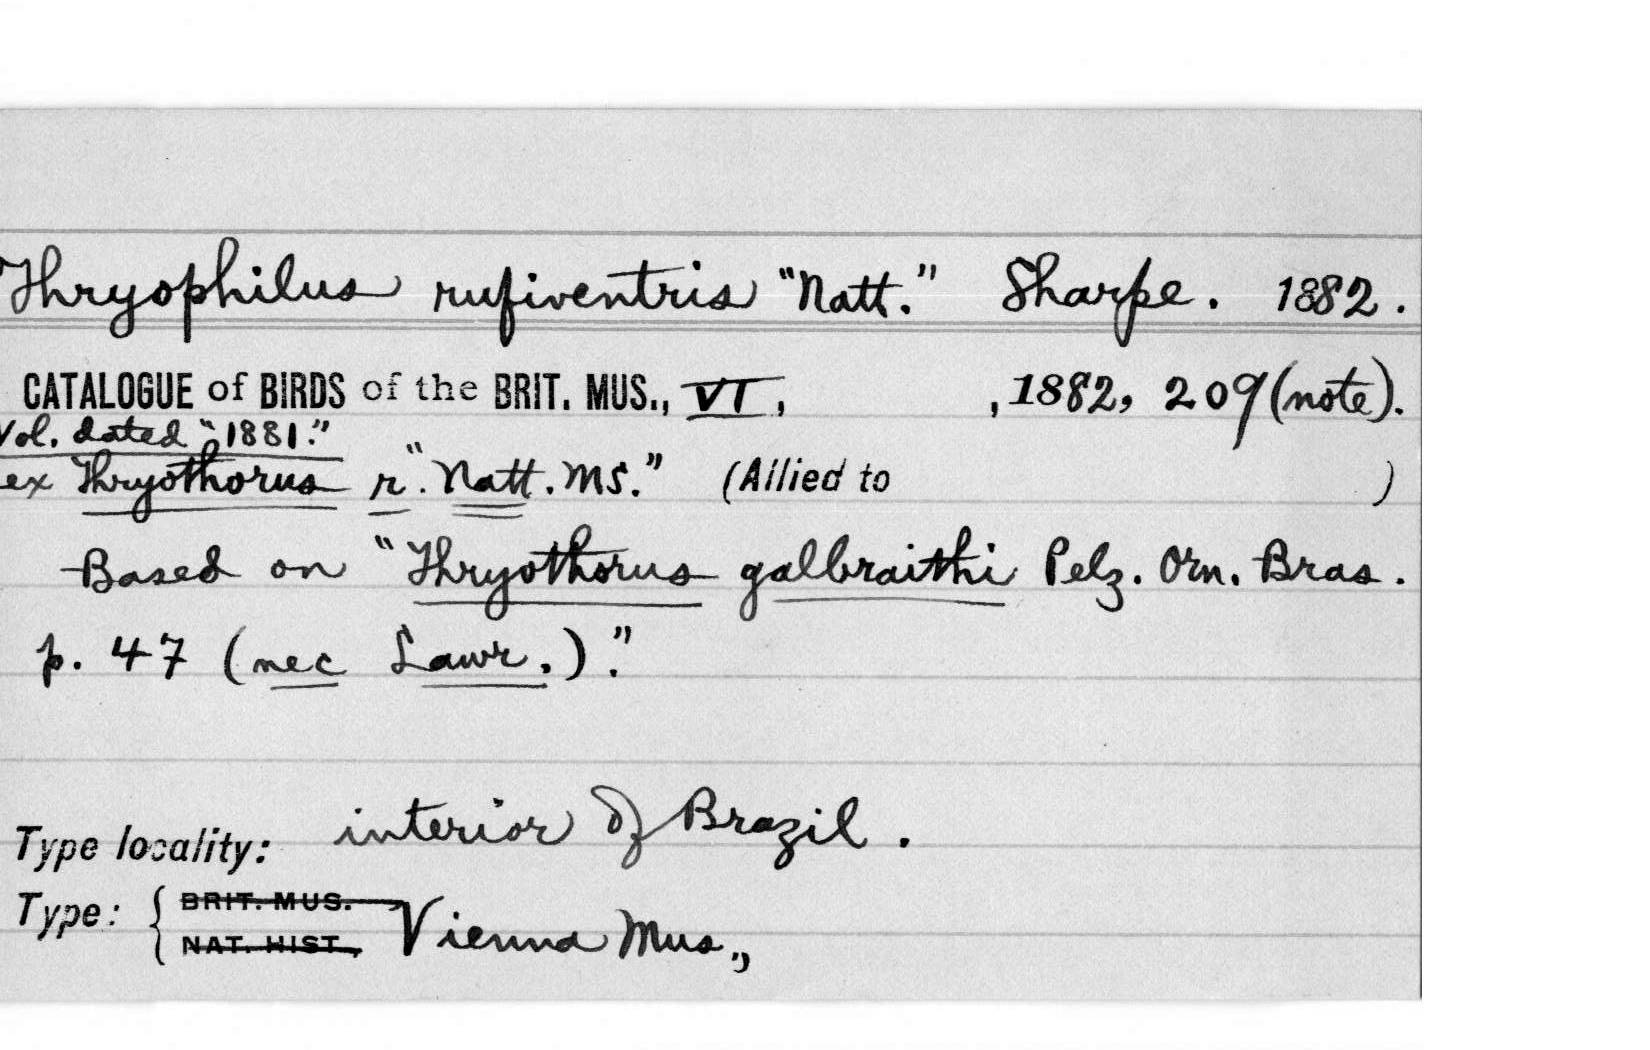 Thryophilus rufiventris "Natt." Sharpe. 1882.
CATALOGUE of BIRDS of the BRIT. MUS., VI, , 1882, 209 (note).
Vol. dated "1881."
ex Thryothorus r. "Natt. MS." (Allied to )
Based on "Thryothorus galbraithi Pelz. Orn. Bras.
p. 47 (nec Lawr.)."
Type locality: interior of Brazil.
Type: { BRIT. MUS.
NAT. HIST., Vienna Mus.,